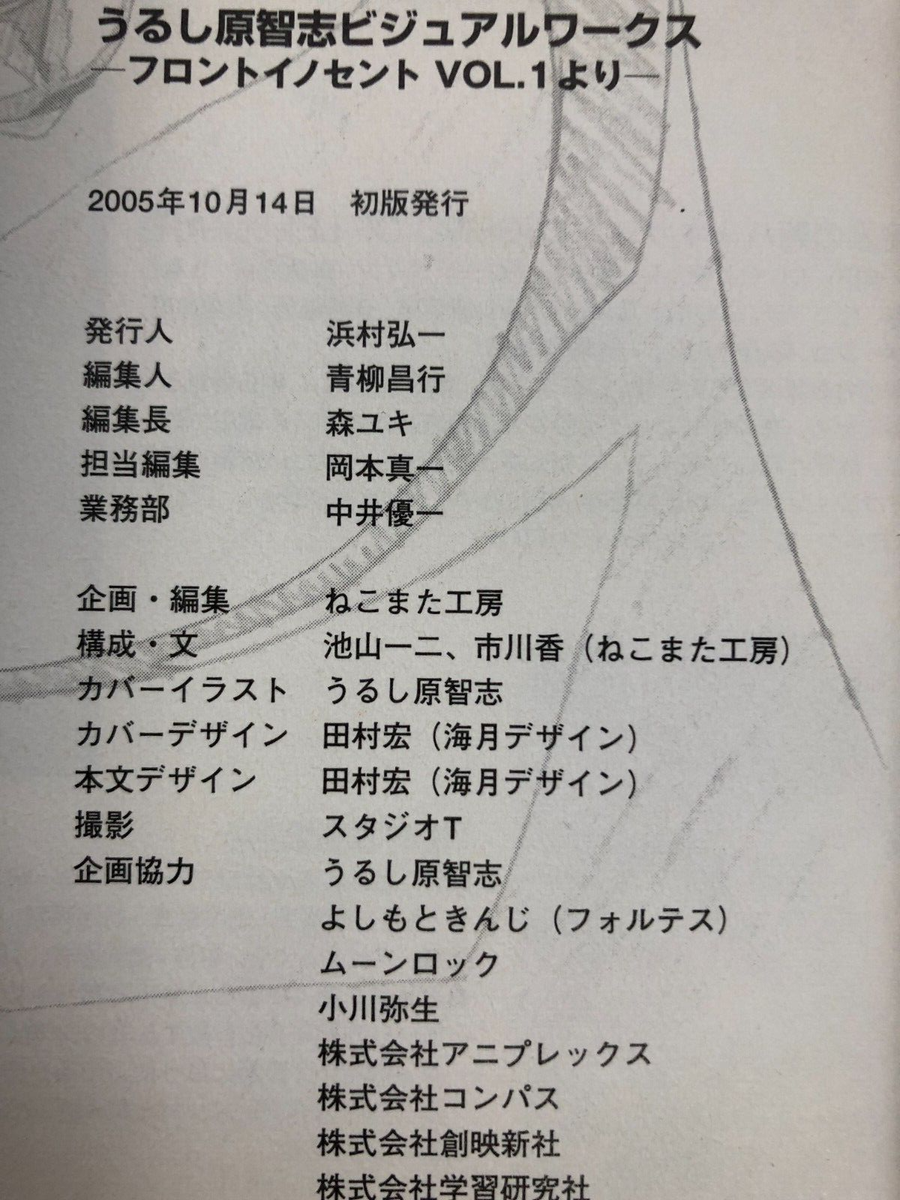 うるし原智志ビジュアルワークス
―フロントイノセント VOL.1より―
2005年10月14日　初版発行
発行人　浜村弘一
編集人　青柳昌行
編集長　森ユキ
担当編集　岡本真一
業務部　中井優一
企画・編集　ねこまた工房
構成・文　池山一二、市川香（ねこまた工房）
カバーイラスト　うるし原智志
カバーデザイン　田村宏（海月デザイン）
本文デザイン　田村宏（海月デザイン）
撮影　スタジオT
企画協力　うるし原智志
よしもときんじ（フォルテス）
ムーンロック
小川弥生
株式会社アニプレックス
株式会社コンパス
株式会社創映新社
株式会社学習研究社